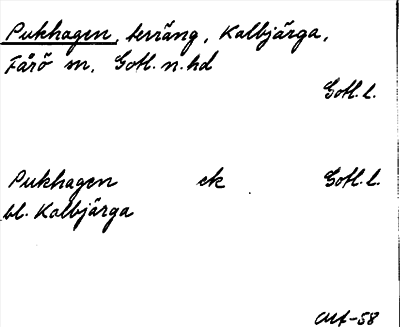 Pukhagen, terräng, Kalbjärga,
Fårö sn, Gotl. n. hd
Gotl. l.
Pukhagen ek Gotl. l.
bl. Kalbjärga